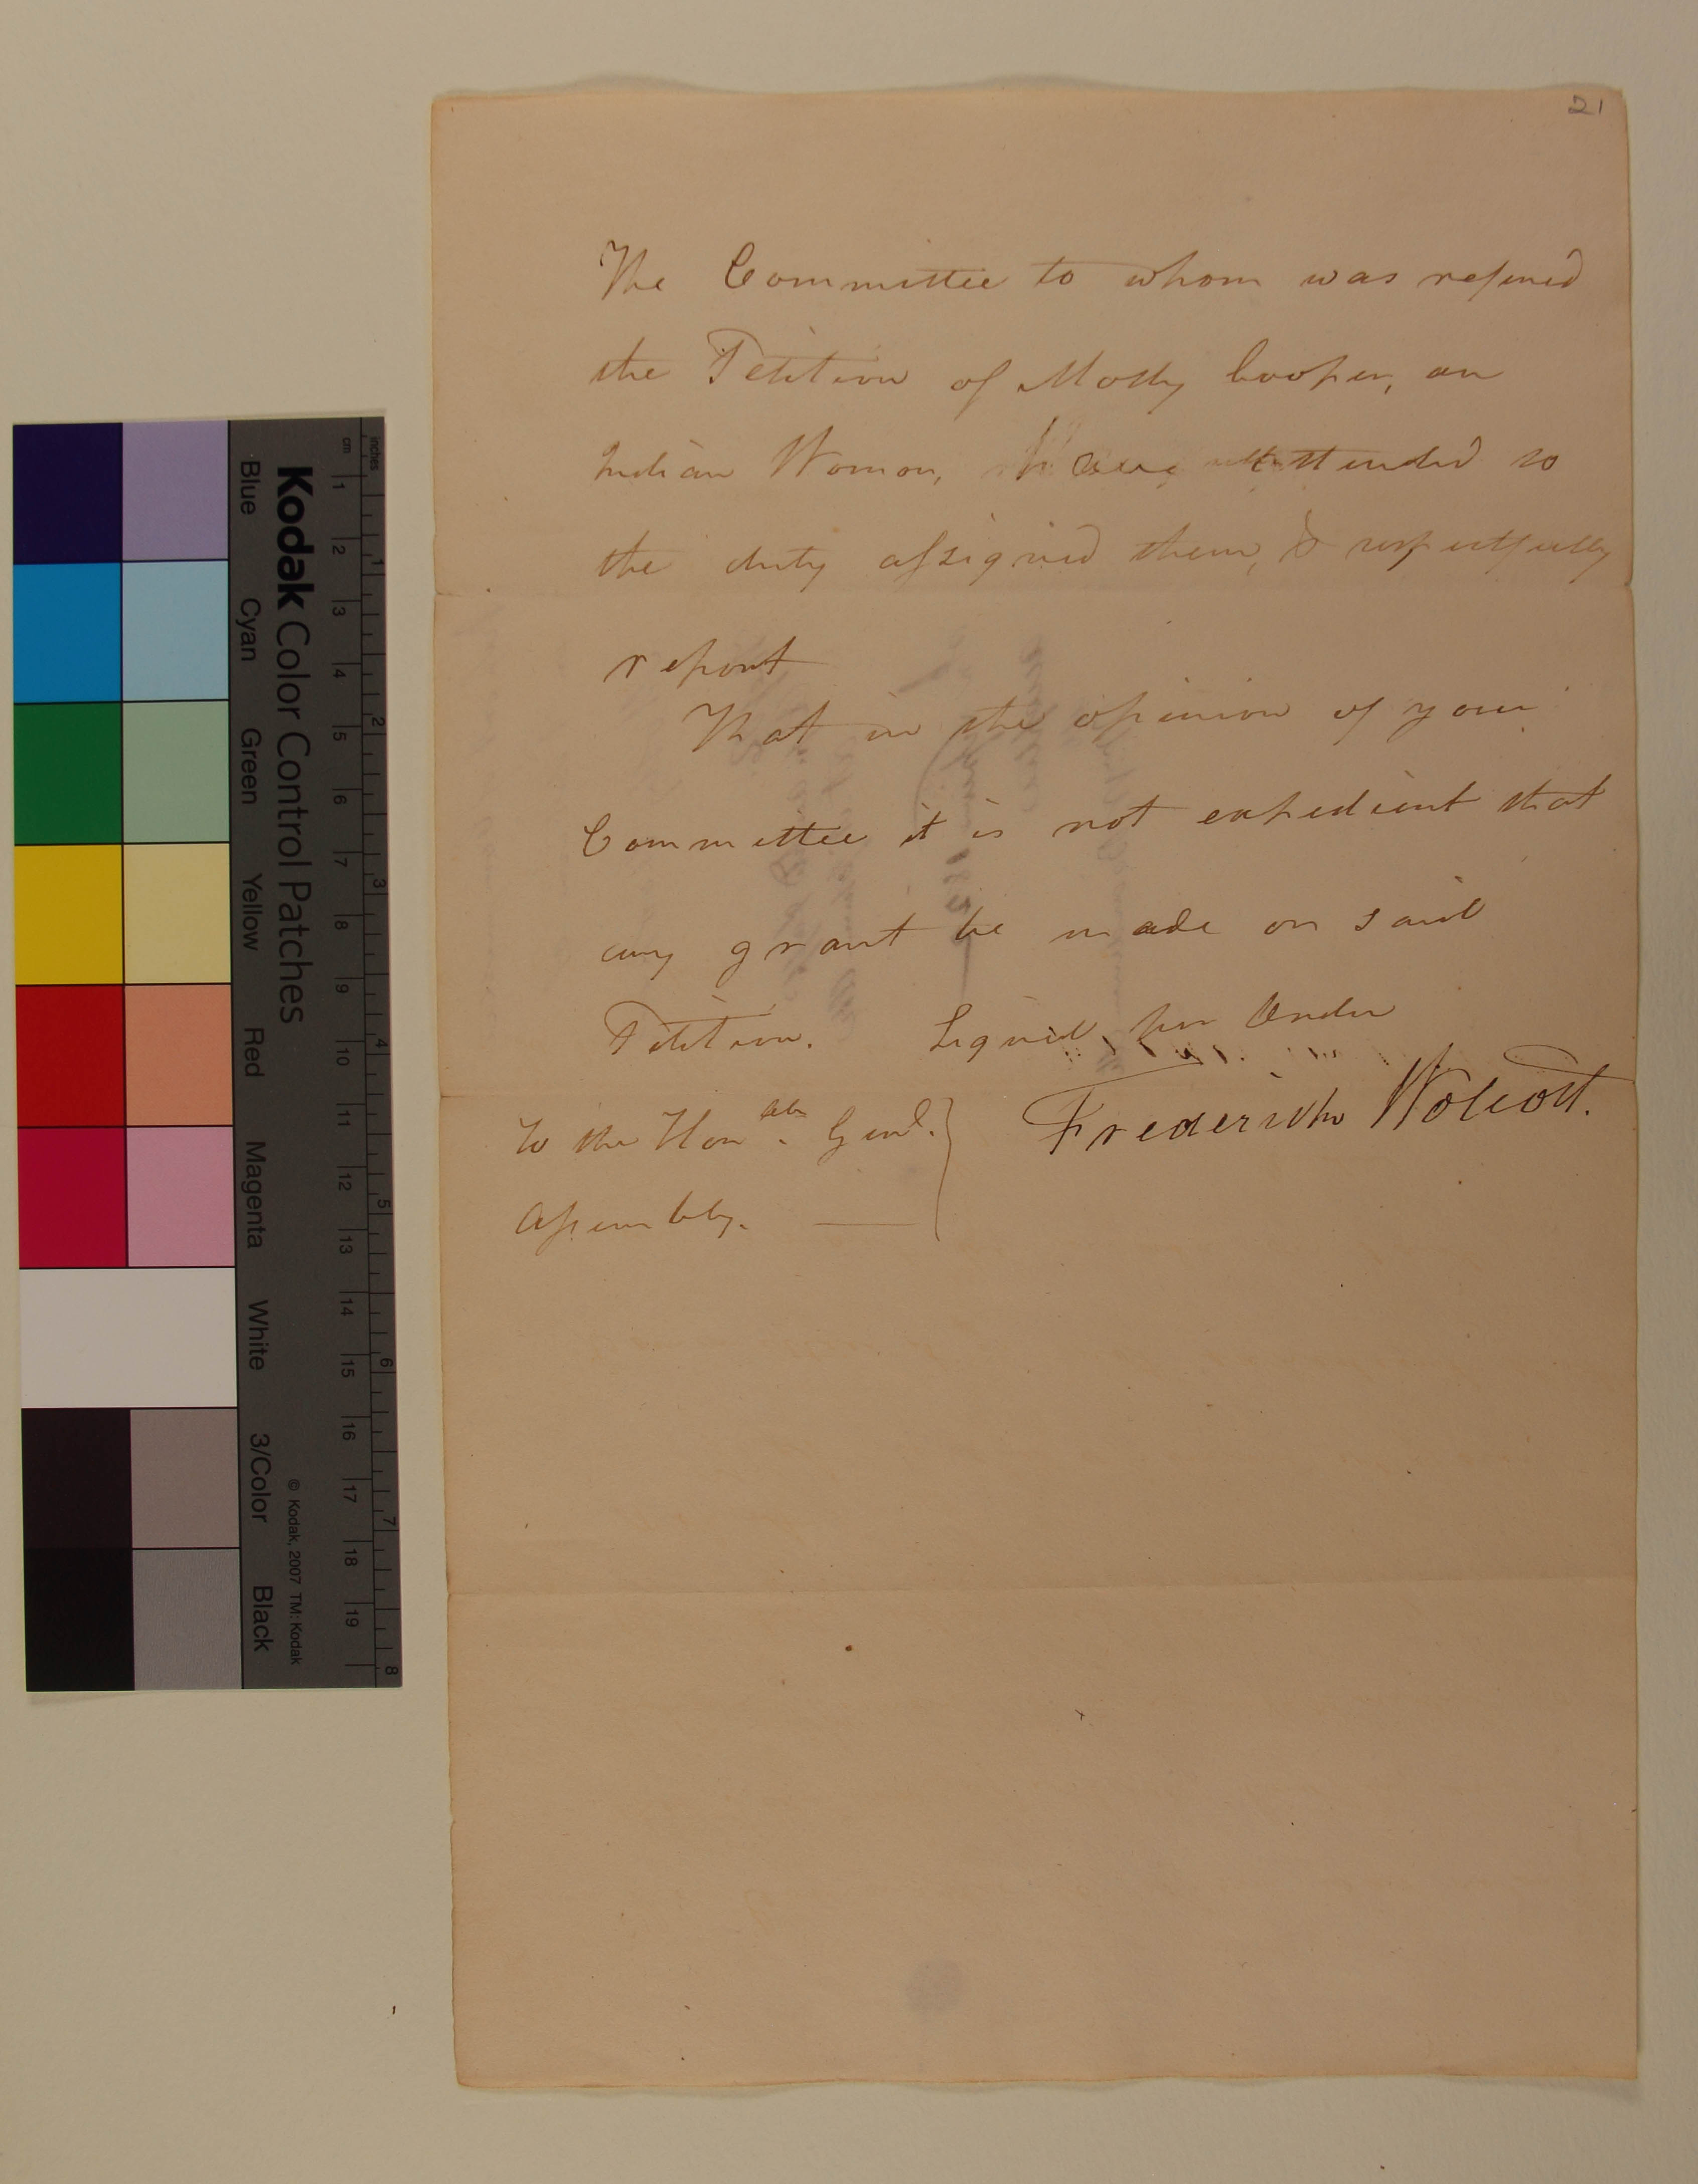 21
The Committee to whom was referred
the Petition of Molly Cooper, an
Indian Woman, Have attended to
the duty assigned them, & respectfully
report
That in the opinion of your
Committee it is not expedient that
any grant be made on said
Petition. Signed, per Order
Frederick Wolcott.
To the Honable. Genl.
Assembly.
Kodak Color Control Patches
Blue Cyan Green Yellow Red Magenta White 3/Color Black
© Kodak, 2007 TM: Kodak
cm 1 2 3 4 5 6 7 8 9 10 11 12 13 14 15 16 17 18 19
inches 1 2 3 4 5 6 7 8